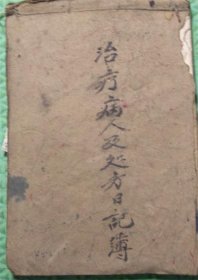 治疗病人及处方日記簿